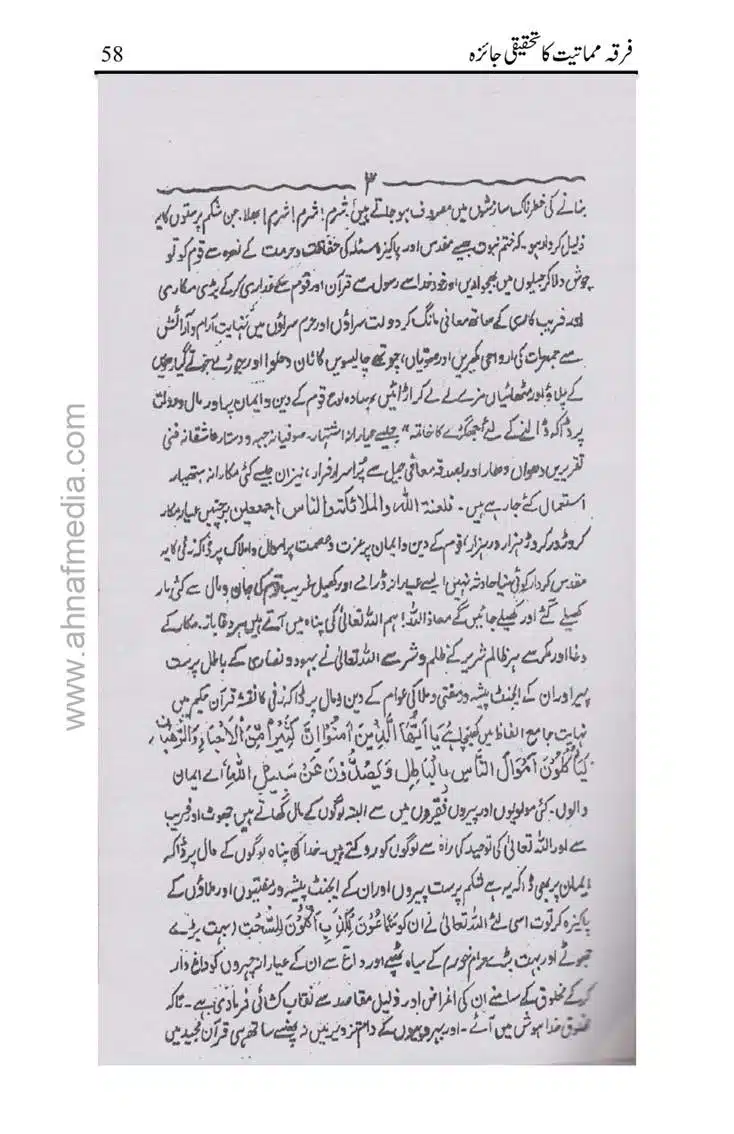 58
فرقہ مماتیت کا تحقیقی جائزہ
۳
بنانے کی خطرناک سازشوں میں مصروف ہو جاتے ہیں۔ شرم! شرم! شرم! بھلا جن شکم پرستوں کا یہ
ذلیل کردار ہو۔ کہ ختم نبوت جیسے مقدس اور پاکیزہ مسئلہ کی حفاظت و حرمت کے نعرہ سے قوم کو تو
جوش دلا کر جیلوں میں بھجوا دیں اور خود خدا سے رسول سے قرآن اور قوم سے غداری کر کے بڑی مکاری
اور فریب کاری کے ساتھ معافی مانگ کر دولت سراؤں اور حرم سراؤں میں نہایت آرام و آرائش
سے جمعرات کی ارواحی کھیریں اور چوتھے چالیسویں کا نان حلوا اور گیارہویں
کے پلاؤ اور مٹھائیاں مزے لے لے کر اڑائیں، سادہ لوح قوم کے دین و ایمان پر اور مال و دولت
پر ڈاکہ ڈالنے کے لئے "جھگڑے کا خاتمہ" جیسے عیارانہ اشتہار۔ صوفیانہ جبہ و دستار عاشقانہ فنی
تقریریں دھواں دھار اور بعد قہ معافی جیل سے پراسرار فرار، نیز ان جیسے کئی مکارانہ ہتھیار
استعمال کئے جا رہے ہیں۔ فلعنة الله والملائكة والناس اجمعين عیار مکار
کروڑ در کروڑ ہزار در ہزار، قوم کے دین و ایمان پر عزت و عصمت پر اموال و املاک پر ڈاکہ زنی کا یہ
مقدس کردار کوئی نیا حادثہ نہیں ایسے عیارانہ ڈرامے اور کھیل غریب قوم کی جان و مال سے کئی بار
کھیلے گئے اور کھیلے جائیں گے معاذ اللہ! ہم اللہ تعالیٰ کی پناہ میں آتے ہیں ہر دغا باز۔ مکار کے
دغا اور مکر سے ہر ظالم شریر کے ظلم و شر سے اللہ تعالیٰ نے یہود و نصاریٰ کے باطل پرست
پیر اور ان کے ایجنٹ پیشہ ور مفتی و ملا کی عوام کے دین و مال پر ڈاکہ زنی کا نقشہ قرآن حکیم میں
نہایت جامع الفاظ میں کھینچا ہے يَا اَيُّهَا الَّذِيْنَ اٰمَنُوْا اِنَّ كَثِيْرًا مِّنَ الْاَحْبَارِ وَالرُّهْبَانِ
لَيَاْكُلُوْنَ اَمْوَالَ النَّاسِ بِالْبَاطِلِ وَيَصُدُّوْنَ عَنْ سَبِيْلِ اللّٰهِ اے ایمان
والوں۔ کئی مولویوں اور پیروں فقیروں میں سے البتہ لوگوں کے مال کھاتے ہیں جھوٹ اور فریب
سے اور اللہ تعالیٰ کی توحید کی راہ سے لوگوں کو روکتے ہیں۔ خدا کی پناہ لوگوں کے مال پر ڈاکہ
ایمان پر بھی ڈاکہ یہ ہے شکم پرست پیروں اور ان کے ایجنٹ پیشہ ور مفتیوں اور ملاؤں کے
پاکیزہ کرتوت اسی لئے اللہ تعالیٰ نے ان کو سَمَّاعُوْنَ لِلْكَذِبِ اَكّٰلُوْنَ لِلسُّحْتِ (بہت بڑے
جھوٹے اور بہت بڑے حرام خور) کے سیاہ ٹھپے اور داغ سے ان کے عیارانہ چہروں کو داغ دار
کر کے مخلوق کے سامنے ان کی اغراض اور ذلیل مقاصد سے نقاب کشائی فرما دی ہے۔ تاکہ
مخلوق خدا ہوش میں آئے۔ اور بہروپیوں کے دام تزویر میں نہ پھنسے ساتھ ہی قرآن مجید میں
www.ahnafmedia.com